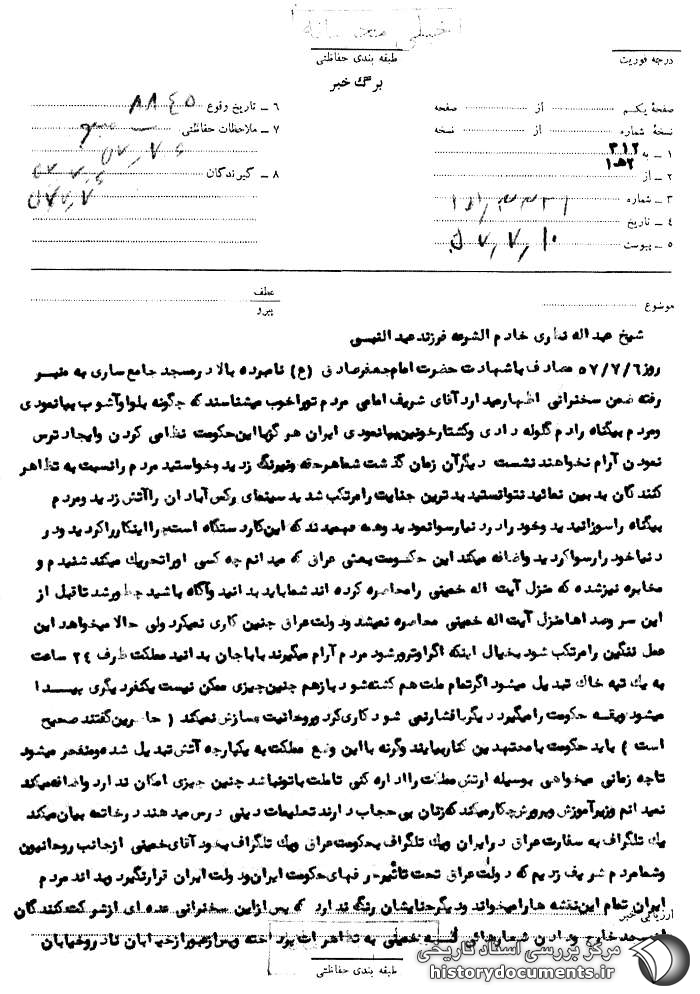 خیلی محرمانه
طبقه بندی حفاظتی
درجه فوریت
برگ خبر
صفحهٔ یکم از صفحه
نسخهٔ شماره از نسخه
۱ ــ به ۳۱۲
۲ ــ از ۲ه۱۰
۳ ــ شماره
۴ ــ تاریخ
۵ ــ پیوست
۶ ــ تاریخ وقوع
۷ ــ ملاحظات حفاظتی
۸ ــ گیرندگان
موضوع
عطف
پیرو
شیخ عبداله نظری خادم الشرعه فرزند عبدالنبی
روز ۵۷/۷/۶ مصادف باشهادت حضرت امام جعفرصادق (ع) نامبرده بالا در مسجد جامع ساری به منبر
رفته ضمن سخنرانی اظهار میدارد آقای شریف امامی مردم تورا خوب میشناسند که چگونه بلوا وآشوب بپا نمودی
ومردم بیگناه را دم گلوله دادی وکشتار خونین بپا نمودی ایران هرگز با این حکومت نظامی کردن وایجاد ترس
نمودن آرام نخواهند نشست دیگر آن زمان گذشت شما هر حقه ونیرنگ زدید وخواستید مردم را نسبت به تظاهر
کنندگان بدبین نمائید نتوانستید بدترین جنایت را مرتکب شدید سینمای رکس آبادان را آتش زدید ومردم
بیگناه را سوزانیدید وخود را در دنیا رسوا نمودید وهمه فهمیدند که این کار دستگاه است چرا اینکار را کردید ودر
دنیا خود را رسوا کردید واضافه میکند این حکومت بعثی عراق که میدانم چه کسی اورا تحریک میکند شنیدم و
مخابره نیز شده که منزل آیت اله خمینی را محاصره کرده اند شما باید بدانید وآگاه باشید چطور شد تا قبل از
این سر وصداها منزل آیت اله خمینی محاصره نمیشد ودولت عراق چنین کاری نمیکرد ولی حالا میخواهد این
عمل ننگین را مرتکب شود بخیال اینکه اگر او ترور شود مردم آرام میگیرند بابا جان بدانید مملکت ظرف ۲۴ ساعت
به یک تپه خاک تبدیل میشود اگر تمام ملت هم کشته شود باز هم چنین چیزی ممکن نیست یکنفر دیگری پیدا
میشود ویقه حکومت را میگیرد دیگر با فشار نمی شود کاری کرد وروحانیت سازش نمیکند ( حاضرین گفتند صحیح
است ) باید حکومت با مجتهدین کنار بیایند وگرنه با این وضع مملکت به یکپارچه آتش تبدیل شده ومنفجر میشود
تا چه زمانی میخواهی بوسیله ارتش مملکت را اداره کنی تا ملت با تو نباشد چنین چیزی امکان ندارد واضافه میکند
نمیدانم وزیر آموزش وپرورش چکار میکند که زنان بی حجاب دارند تعلیمات دینی درس میدهند در خاتمه بیان میکند
یک تلگراف به سفارت عراق در ایران ویک تلگراف بحکومت عراق ویک تلگراف بخود آقای خمینی از جانب روحانیون
وشما مردم شریف زدیم که دولت عراق تحت تاثیر حرفهای حکومت ایران ودولت ایران قرار نگیرد وبداند مردم
ایران تمام این نقشه ها را میخواند ودیگر حنایشان رنگ ندارد که پس از این سخنرانی عده ای از شرکت کنندگان
ارزیابی خبر
از مسجد خارج ودادن شعارهای خمینی به تظاهرات پرداخته وپس از عبور از خیابان نادر وخیابان
طبقه بندی حفاظتی
مرکز بررسی اسناد تاریخی
historydocuments.ir